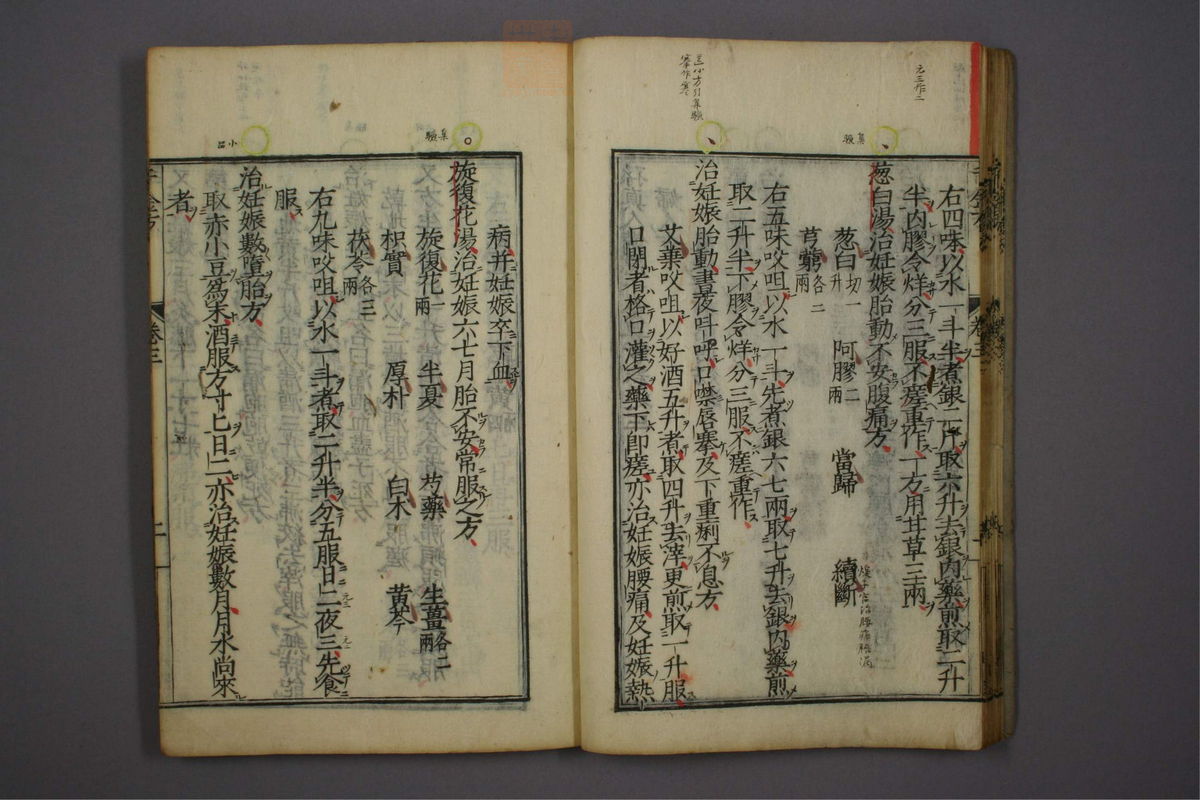 右四味以水一斗半煮銀二斤取六升去銀内藥煎取二升
半内膠令烊分三服不瘥重作一方用甘草三兩
葱白湯治妊娠胎動不安腹痛方
葱白切一升 阿膠二兩 當歸 續斷
芎藭各二兩
右五味㕮咀以水一斗先煮銀六七兩取七升去銀内藥煎
取二升半下膠令烊分三服不瘥重作
治妊娠胎動晝夜呌呼口噤唇搴及下重痢不息方
艾葉㕮咀以好酒五升煮取四升去滓更煎取一升服
口閉者格口灌之藥下即瘥亦治妊娠腰痛及妊娠熱
病并妊娠卒下血
旋復花湯治妊娠六七月胎不安常服之方
旋復花兩 半夏 芍藥 生薑各二兩
枳實 厚朴 白术 黄芩
茯苓各三兩
右九味㕮咀以水一斗煮取二升半分五服日二夜三先食
服
治妊娠數墮胎方
取赤小豆爲末酒服方寸匕日二亦治妊娠數月月水尚來
者
元三作二
集驗
集驗
小品
卷三